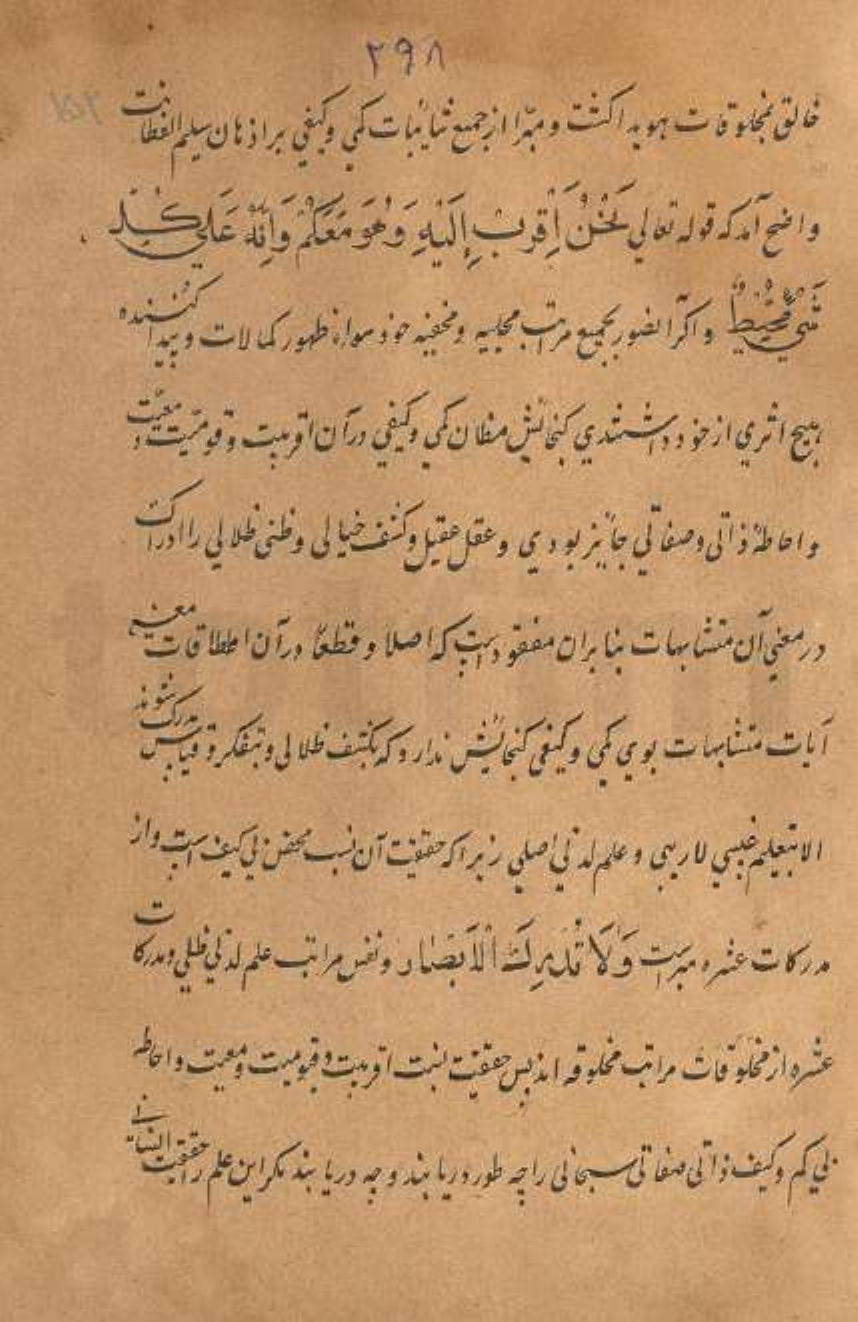 ۲۹۸
۱۵۲
خالق بمخلوقات هویدا کشت و مبرّا از جمیع شایٔبات کمی و کیفی بر اذهان سلیم الفطانت
واضح آمد که قوله تعالی نَحْنُ اَقْرَبُ اِلَیْهِ وَهُوَ مَعَکُمْ وَاِنَّهُ عَلَی کُلِّ
شَیْءٍ مُحِیْطٌ و اکر آنصور بجمیع مراتب مجلیه و مخفیه خود سواء ظهور کمالات و پیدا کننده
هیچ اثری از خود داشتندی کنجایٔش مظان کمی و کیفی در آن اقربیت و قومیّت و معیّت
و احاطهٔ ذاتی و صفاتی جایٔز بودی و عقل عقیل و کشف خیالی و ظنی ظلالی را ادراکت
در معنی آن متشابهات بنا بران مفقود است که اصلا و قطعاً در آن اطلاقات معنیهٔ
آیات متشابهات بوی کمی و کیفی کنجایٔش ندارد که بکشف ظلالی و بتفکر و قیاس مدرک شوند
الا بتعلیم غیبی لاریبی و علم لدنی اصلی زیرا که حقیقت آن نسب محض بی کیف است و از
مدرکات عشره مبراست وَلَا تُدْرِکُ الْاَبْصَار و نفس مراتب علم لدنی ظلی و مدرکات
عشره از مخلوقات مراتب مخلوقه اند پس حقیقت نسبت اقربیت و قیومیت و معیت و احاطه
بی کم و کیف ذاتی صفاتی سبحانی را چه طور دریابند و چه دریابند مکر این علم را حقیقت انسانی